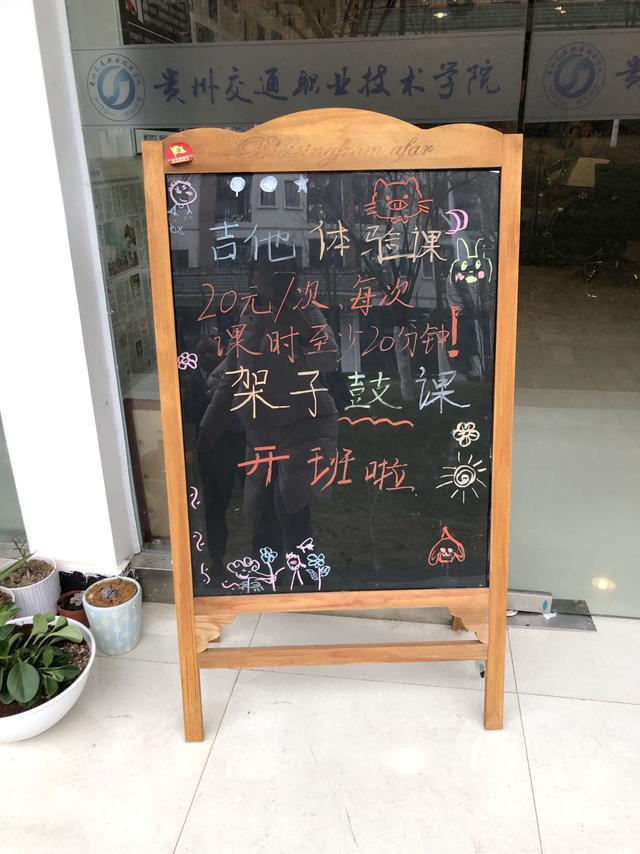 贵州交通职业技术学院
Blessingfrom afar
吉他 体验课
20元/次、每次
课时至少20分钟！
架子鼓课
开班啦